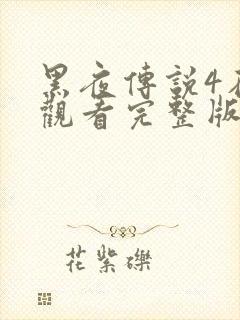 黑夜傳說4在
觀看完整版
花紫礫